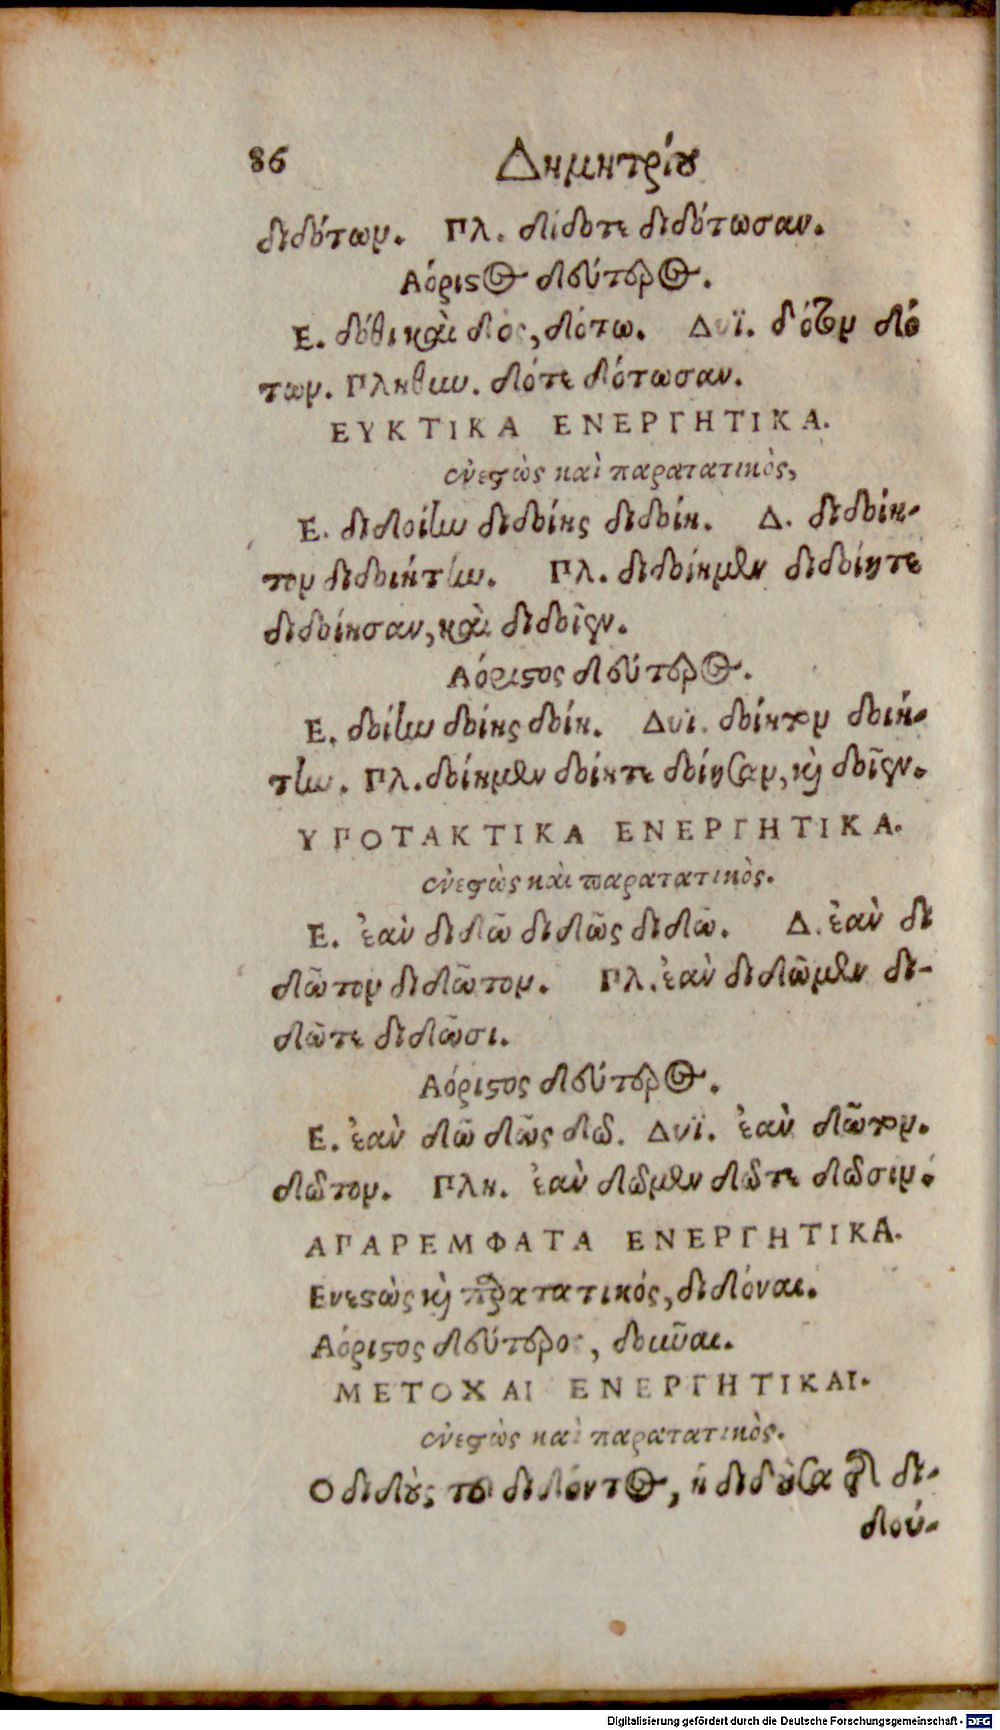 86 Δημητρίου
διδότων. Πλ. δίδοτε διδότωσαν.
Αόριστος δεύτερος.
Ε. δόθι καὶ δὸς, δότω. Δυϊ. δότον δό
των. Πληθιω. δότε δότωσαν.
ΕΥΚΤΙΚΑ ΕΝΕΡΓΗΤΙΚΑ.
ἐνεστὼς καὶ παρατατικὸς,
Ε. διδοίην διδοίης διδοίη. Δ. διδοίη-
τον διδοιήτην. Πλ. διδοίημεν διδοίητε
διδοίησαν, καὶ διδοῖεν.
Αόριστος δεύτερος.
Ε. δοίην δοίης δοίη. Δυϊ. δοίητον δοιή-
την. Πλ. δοίημεν δοίητε δοίησαν, καὶ δοῖεν.
ΥΠΟΤΑΚΤΙΚΑ ΕΝΕΡΓΗΤΙΚΑ.
ἐνεστὼς καὶ παρατατικὸς.
Ε. ἐὰν διδῶ διδῶς διδῶ. Δ. ἐὰν δι
δῶτον διδῶτον. Πλ. ἐὰν διδῶμεν δι-
δῶτε διδῶσι.
Αόριστος δεύτερος.
Ε. ἐὰν δῶ δῶς δῶ. Δυϊ. ἐὰν δῶτον.
δῶτον. Πλη. ἐὰν δῶμεν δῶτε δῶσιν.
ΑΠΑΡΕΜΦΑΤΑ ΕΝΕΡΓΗΤΙΚΑ.
Ενεστὼς καὶ παρατατικός, διδόναι.
Αόριστος δεύτερος, δοιῦαι.
ΜΕΤΟΧΑΙ ΕΝΕΡΓΗΤΙΚΑΙ.
ἐνεστὼς καὶ παρατατικὸς.
Ο διδοὺς τοῦ διδόντος, ἡ διδοῦσα τῆς δι-
δού-
Digitalisierung gefördert durch die Deutsche Forschungsgemeinschaft - DFG